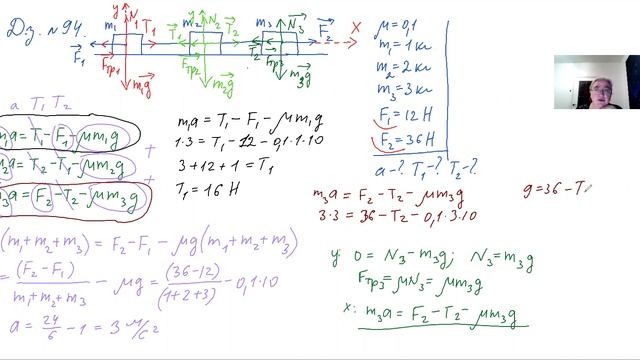 Дз. №94.
y N₁ T₁ T₁ N₂ T₂ m₃ N₃ F₂ x
m₁ m₂
F₁ Fтр₁ m₁g Fтр₂ m₂g Fтр₃ T₂ m₃g
μ=0,1
m₁=1 кг
m₂=2 кг
m₃=3 кг
F₁=12 Н
F₂=36 Н
a-? T₁-? T₂-?
a T₁ T₂
m₁a=T₁-F₁-μm₁g
m₂a=T₂-T₁-μm₂g
m₃a=F₂-T₂-μm₃g
(m₁+m₂+m₃)=F₂-F₁-μg(m₁+m₂+m₃)
=(F₂-F₁)/(m₁+m₂+m₃) - μg=(36-12)/(1+2+3) - 0,1·10
a=24/6-1=3 м/с²
m₁a=T₁-F₁-μm₁g
1·3=T₁-12-0,1·1·10
3+12+1=T₁
T₁=16 Н
m₃a=F₂-T₂-μm₃g
3·3=36-T₂-0,1·3·10
9=36-T
y: 0=N₃-m₃g; N₃=m₃g
Fтр₃=μN₃=μm₃g
x: m₃a=F₂-T₂-μm₃g